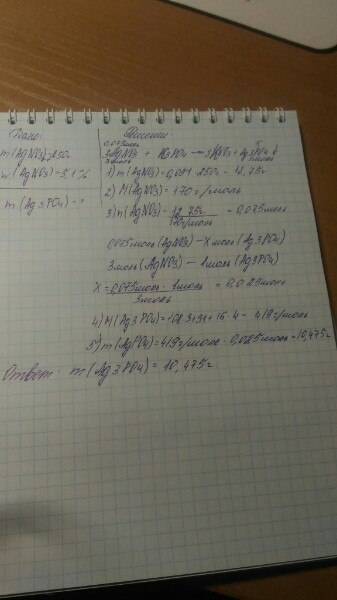 Дано:
m(AgNO3)=250г
w(AgNO3)=5,1%
m(Ag3PO4)-?
Решение
0,075моль
3AgNO3 +
3моль
1) m(AgNO3)=0,051·250г=12,75г
2) M(AgNO3)=170г/моль
3) n(AgNO3)=12,75г/170г/моль=0,075моль
0,075моль(AgNO3)-Xмоль(Ag3PO4)
3моль(AgNO3)-1моль(Ag3PO4)
X=0,075моль·1моль/3моль=0,025моль
4) M(Ag3PO4)=108·3+31+16·4=419г/моль
5) m(AgPO4)=419г/моль·0,025моль=10,475г
Ответ: m(Ag3PO4)=10,475г